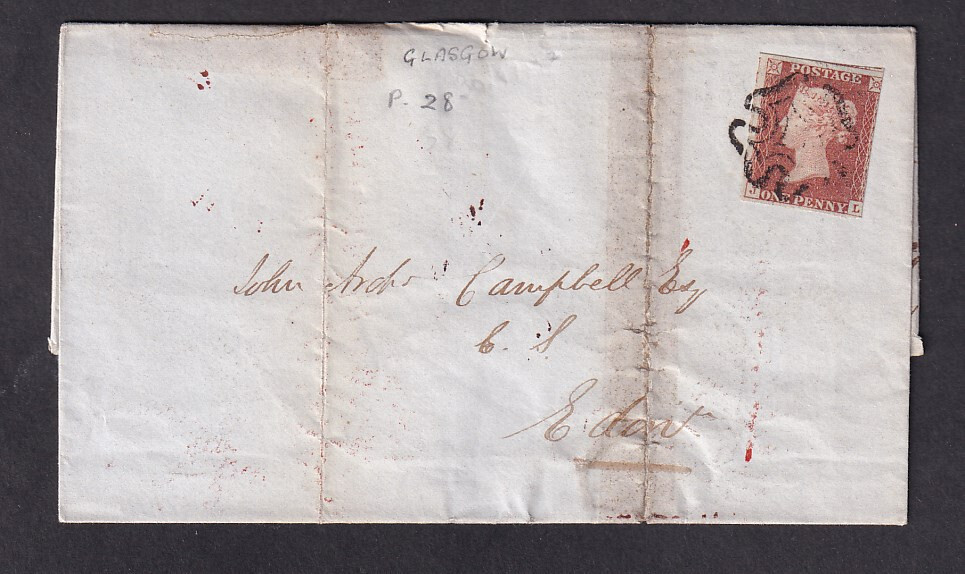 GLASGOW
P. 28
POSTAGE
ONE PENNY
J L
John Archd Campbell Esq
C. S
Edinr